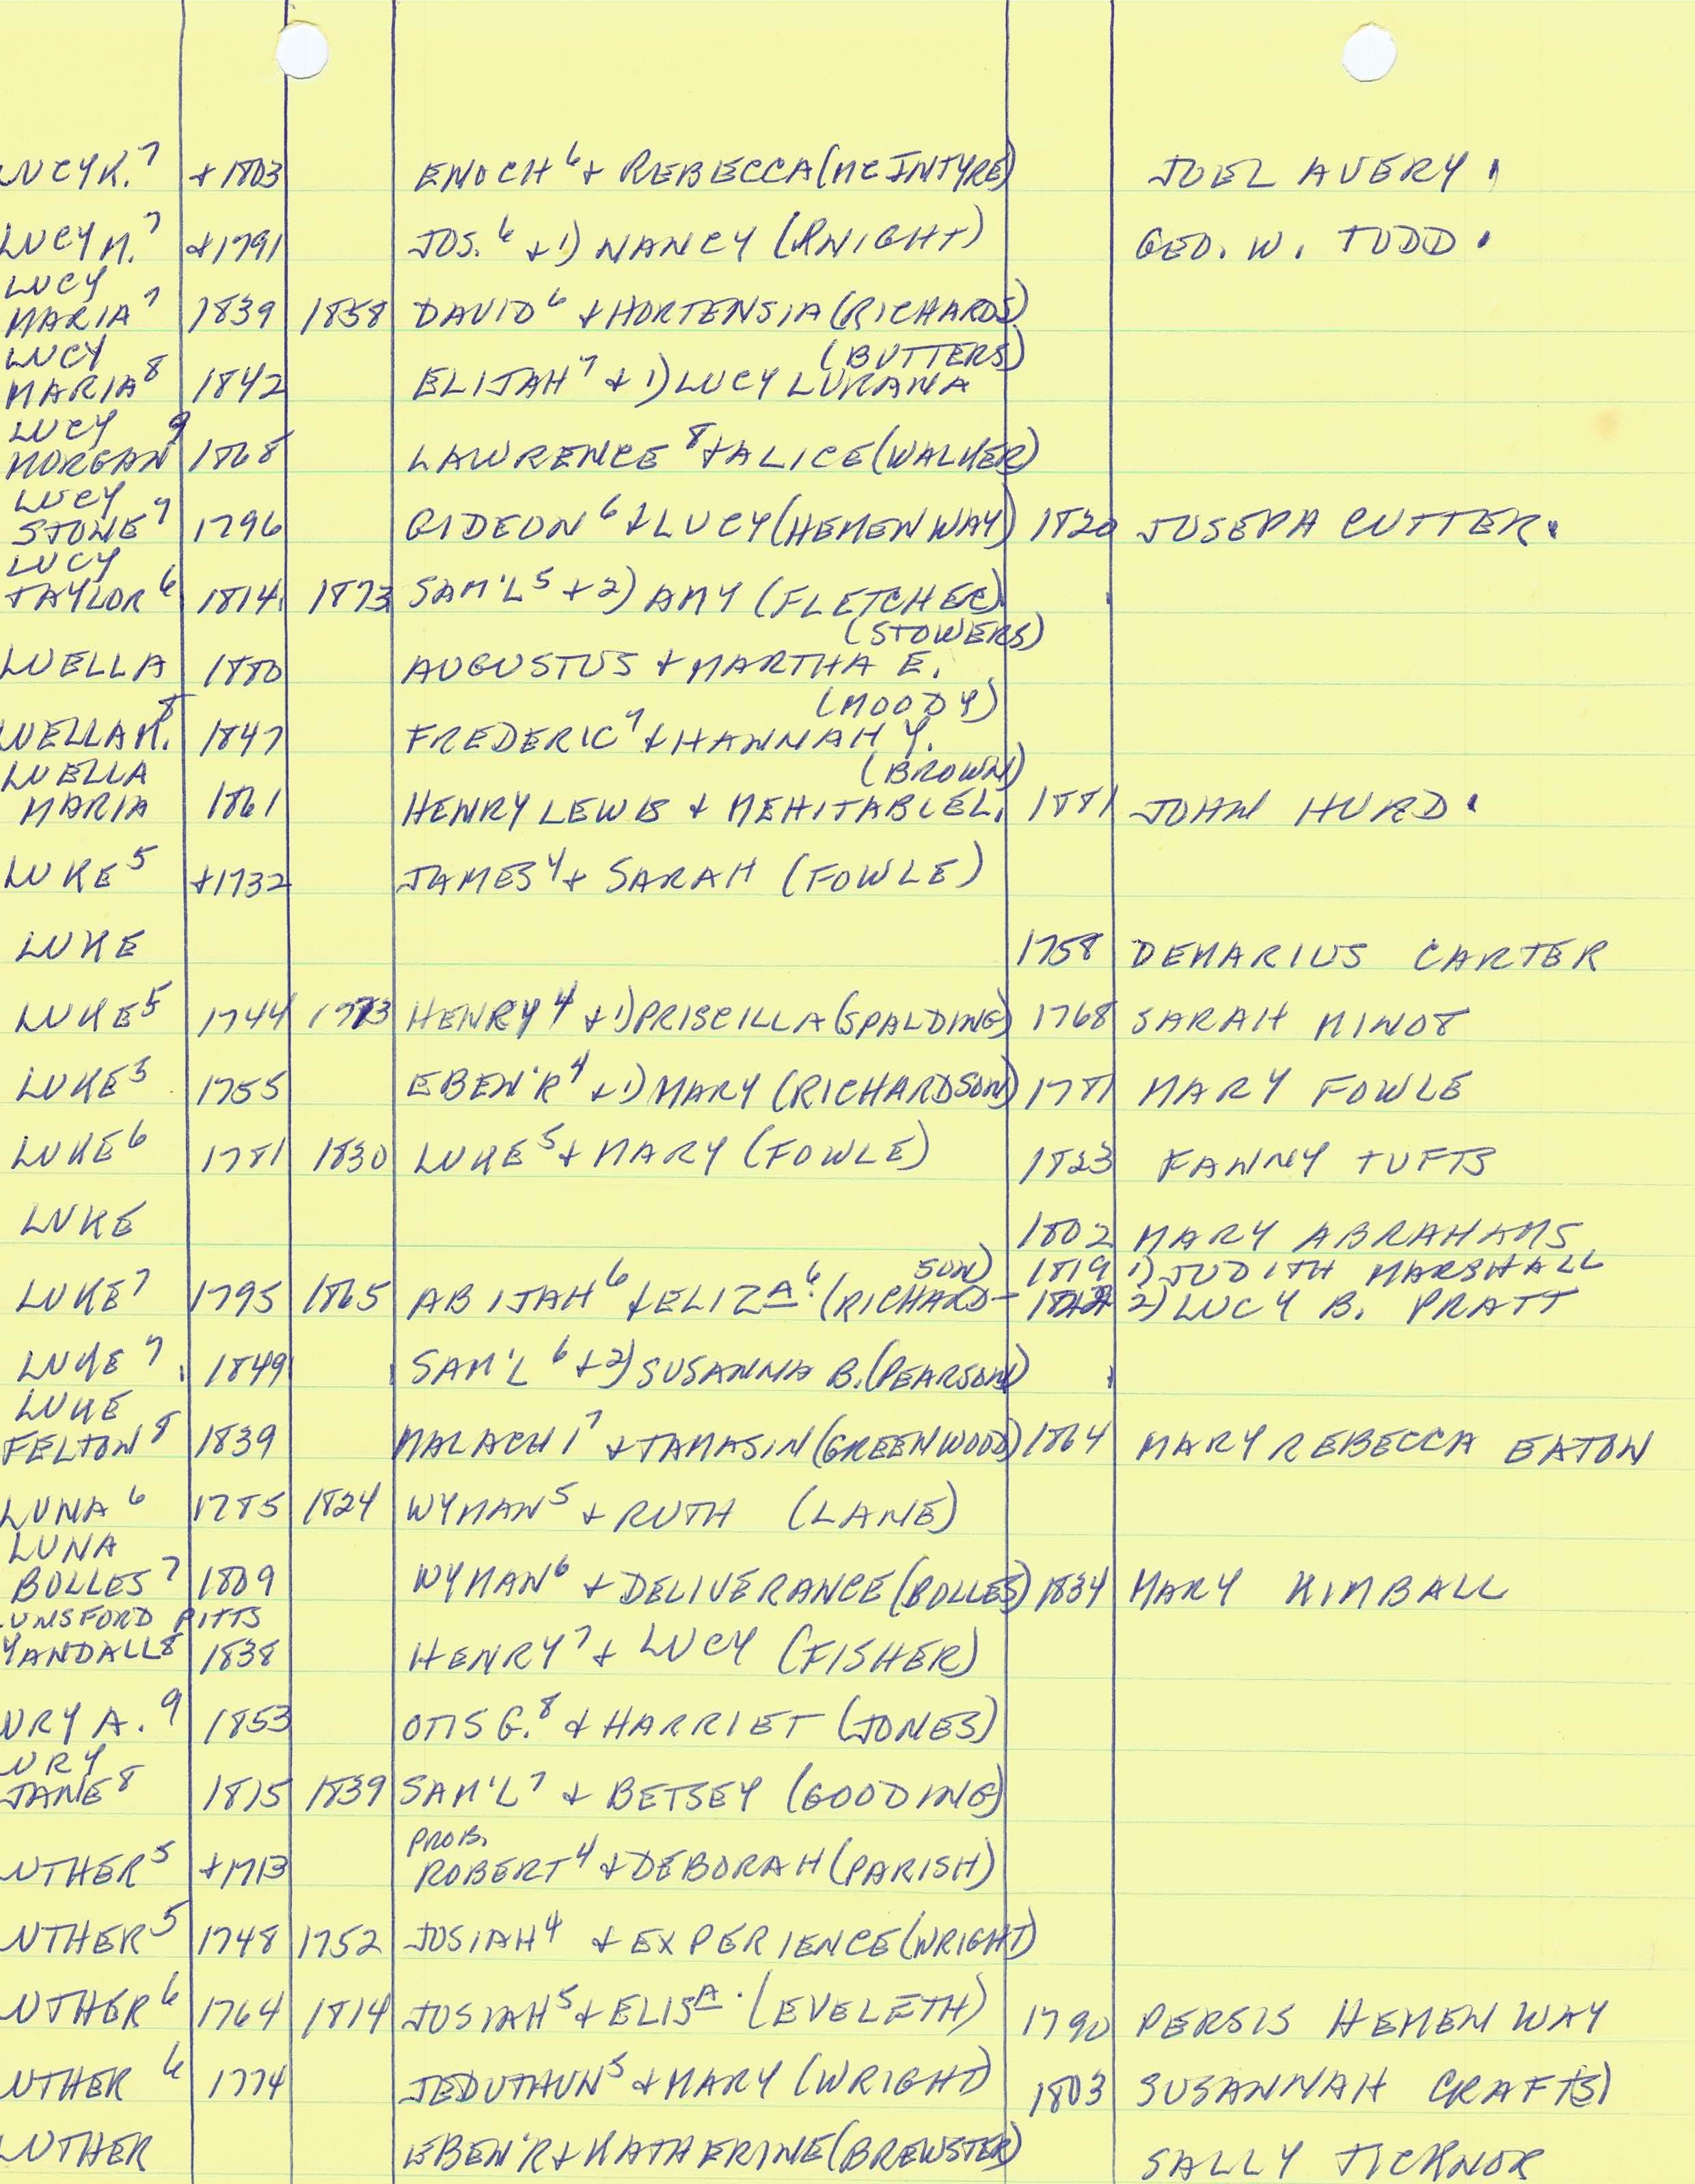 LUCY K.⁷ +1803 ENOCH⁶ + REBECCA (MCINTYRE) JOEL AVERY.
LUCY M.⁷ +1791 JOS.⁶ + 1) NANCY (KNIGHT) GEO. W. TODD.
LUCY
MARIA⁷ 1839 1858 DAVID⁶ + HORTENSIA (RICHARDS)
LUCY (BUTTERS)
MARIA⁸ 1842 ELIJAH⁷ + 1) LUCY LURANA
LUCY
MORGAN⁹ 1868 LAWRENCE⁸ + ALICE (WALKER)
LUCY
STONE⁷ 1796 GIDEON⁶ + LUCY (HEMENWAY) 1820 JOSEPH CUTTER.
LUCY
TAYLOR⁶ 1814 1873 SAM'L⁵ + 2) AMY (FLETCHER)
(STOWERS)
LUELLA 1880 AUGUSTUS + MARTHA E.
(MOODY)
LUELLA M.⁸ 1847 FREDERIC⁷ + HANNAH Y.
LUELLA (BROWN)
MARIA 1861 HENRY LEWIS + MEHITABLE L. 1881 JOHN HURD.
LUKE⁵ +1732 JAMES⁴ + SARAH (FOWLE)
LUKE 1758 DEMARIUS CARTER
LUKE⁵ 1744 1773 HENRY⁴ + 1) PRISCILLA (SPALDING) 1768 SARAH MINOT
LUKE⁵ 1755 EBEN'R⁴ + 1) MARY (RICHARDSON) 1781 MARY FOWLE
LUKE⁶ 1781 1830 LUKE⁵ + MARY (FOWLE) 1823 FANNY TUFTS
LUKE 1802 MARY ABRAHAMS
SON) 1819 1) JUDITH MARSHALL
LUKE⁷ 1795 1865 ABIJAH⁶ + ELIZA⁶. (RICHARD- 2) LUCY B. PRATT
LUKE⁷ 1849 SAM'L⁶ + 2) SUSANNA B. (PEARSON)
LUKE
FELTON⁸ 1839 MALACHI⁷ + TAMASIN (GREENWOOD) 1864 MARY REBECCA EATON
LUNA⁶ 1785 1824 WYMAN⁵ + RUTH (LANE)
LUNA
BOLLES⁷ 1809 WYMAN⁶ + DELIVERANCE (BOLLES) 1834 MARY KIMBALL
LUNSFORD PITTS
YANDALL⁸ 1838 HENRY⁷ + LUCY (FISHER)
URY A.⁹ 1853 OTIS G.⁸ + HARRIET (JONES)
URY
JANE⁸ 1815 1839 SAM'L⁷ + BETSEY (GOODING)
PROB.
UTHER⁵ +1713 ROBERT⁴ + DEBORAH (PARISH)
UTHER⁵ 1748 1752 JOSIAH⁴ + EXPERIENCE (WRIGHT)
UTHER⁶ 1764 1814 JOSIAH⁵ + ELISA. (EVELETH) 1790 PERSIS HEMENWAY
UTHER⁶ 1774 JEDUTHUN⁵ + MARY (WRIGHT) 1803 SUSANNAH CRAFT(S)
LUTHER EBEN'R + KATHERINE (BREWSTER) SALLY TICKNOR